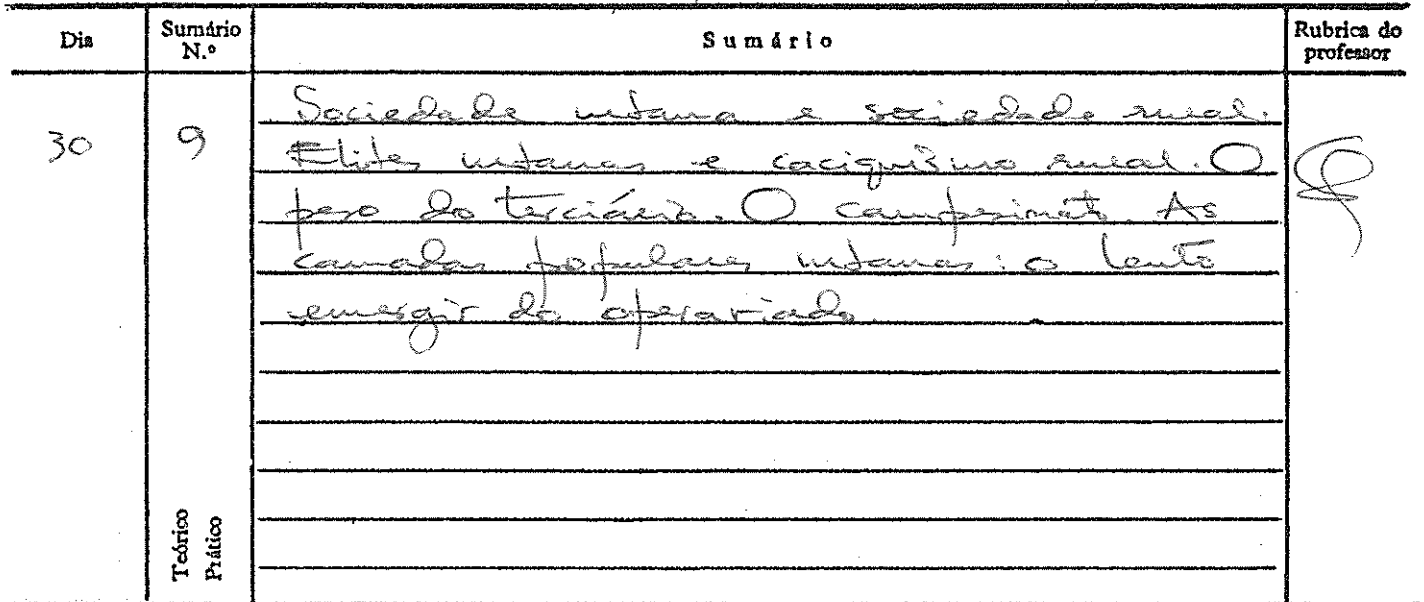 Dia
Sumário N.º
Sumário
Rubrica do professor
30
9
Sociedade urbana e sociedade rural.
Elites urbanas e caciquismo rural. O
peso do terciário. O campesinato. As
camadas populares urbanas: o lento
emergir do operariado.
Teórico
Prático